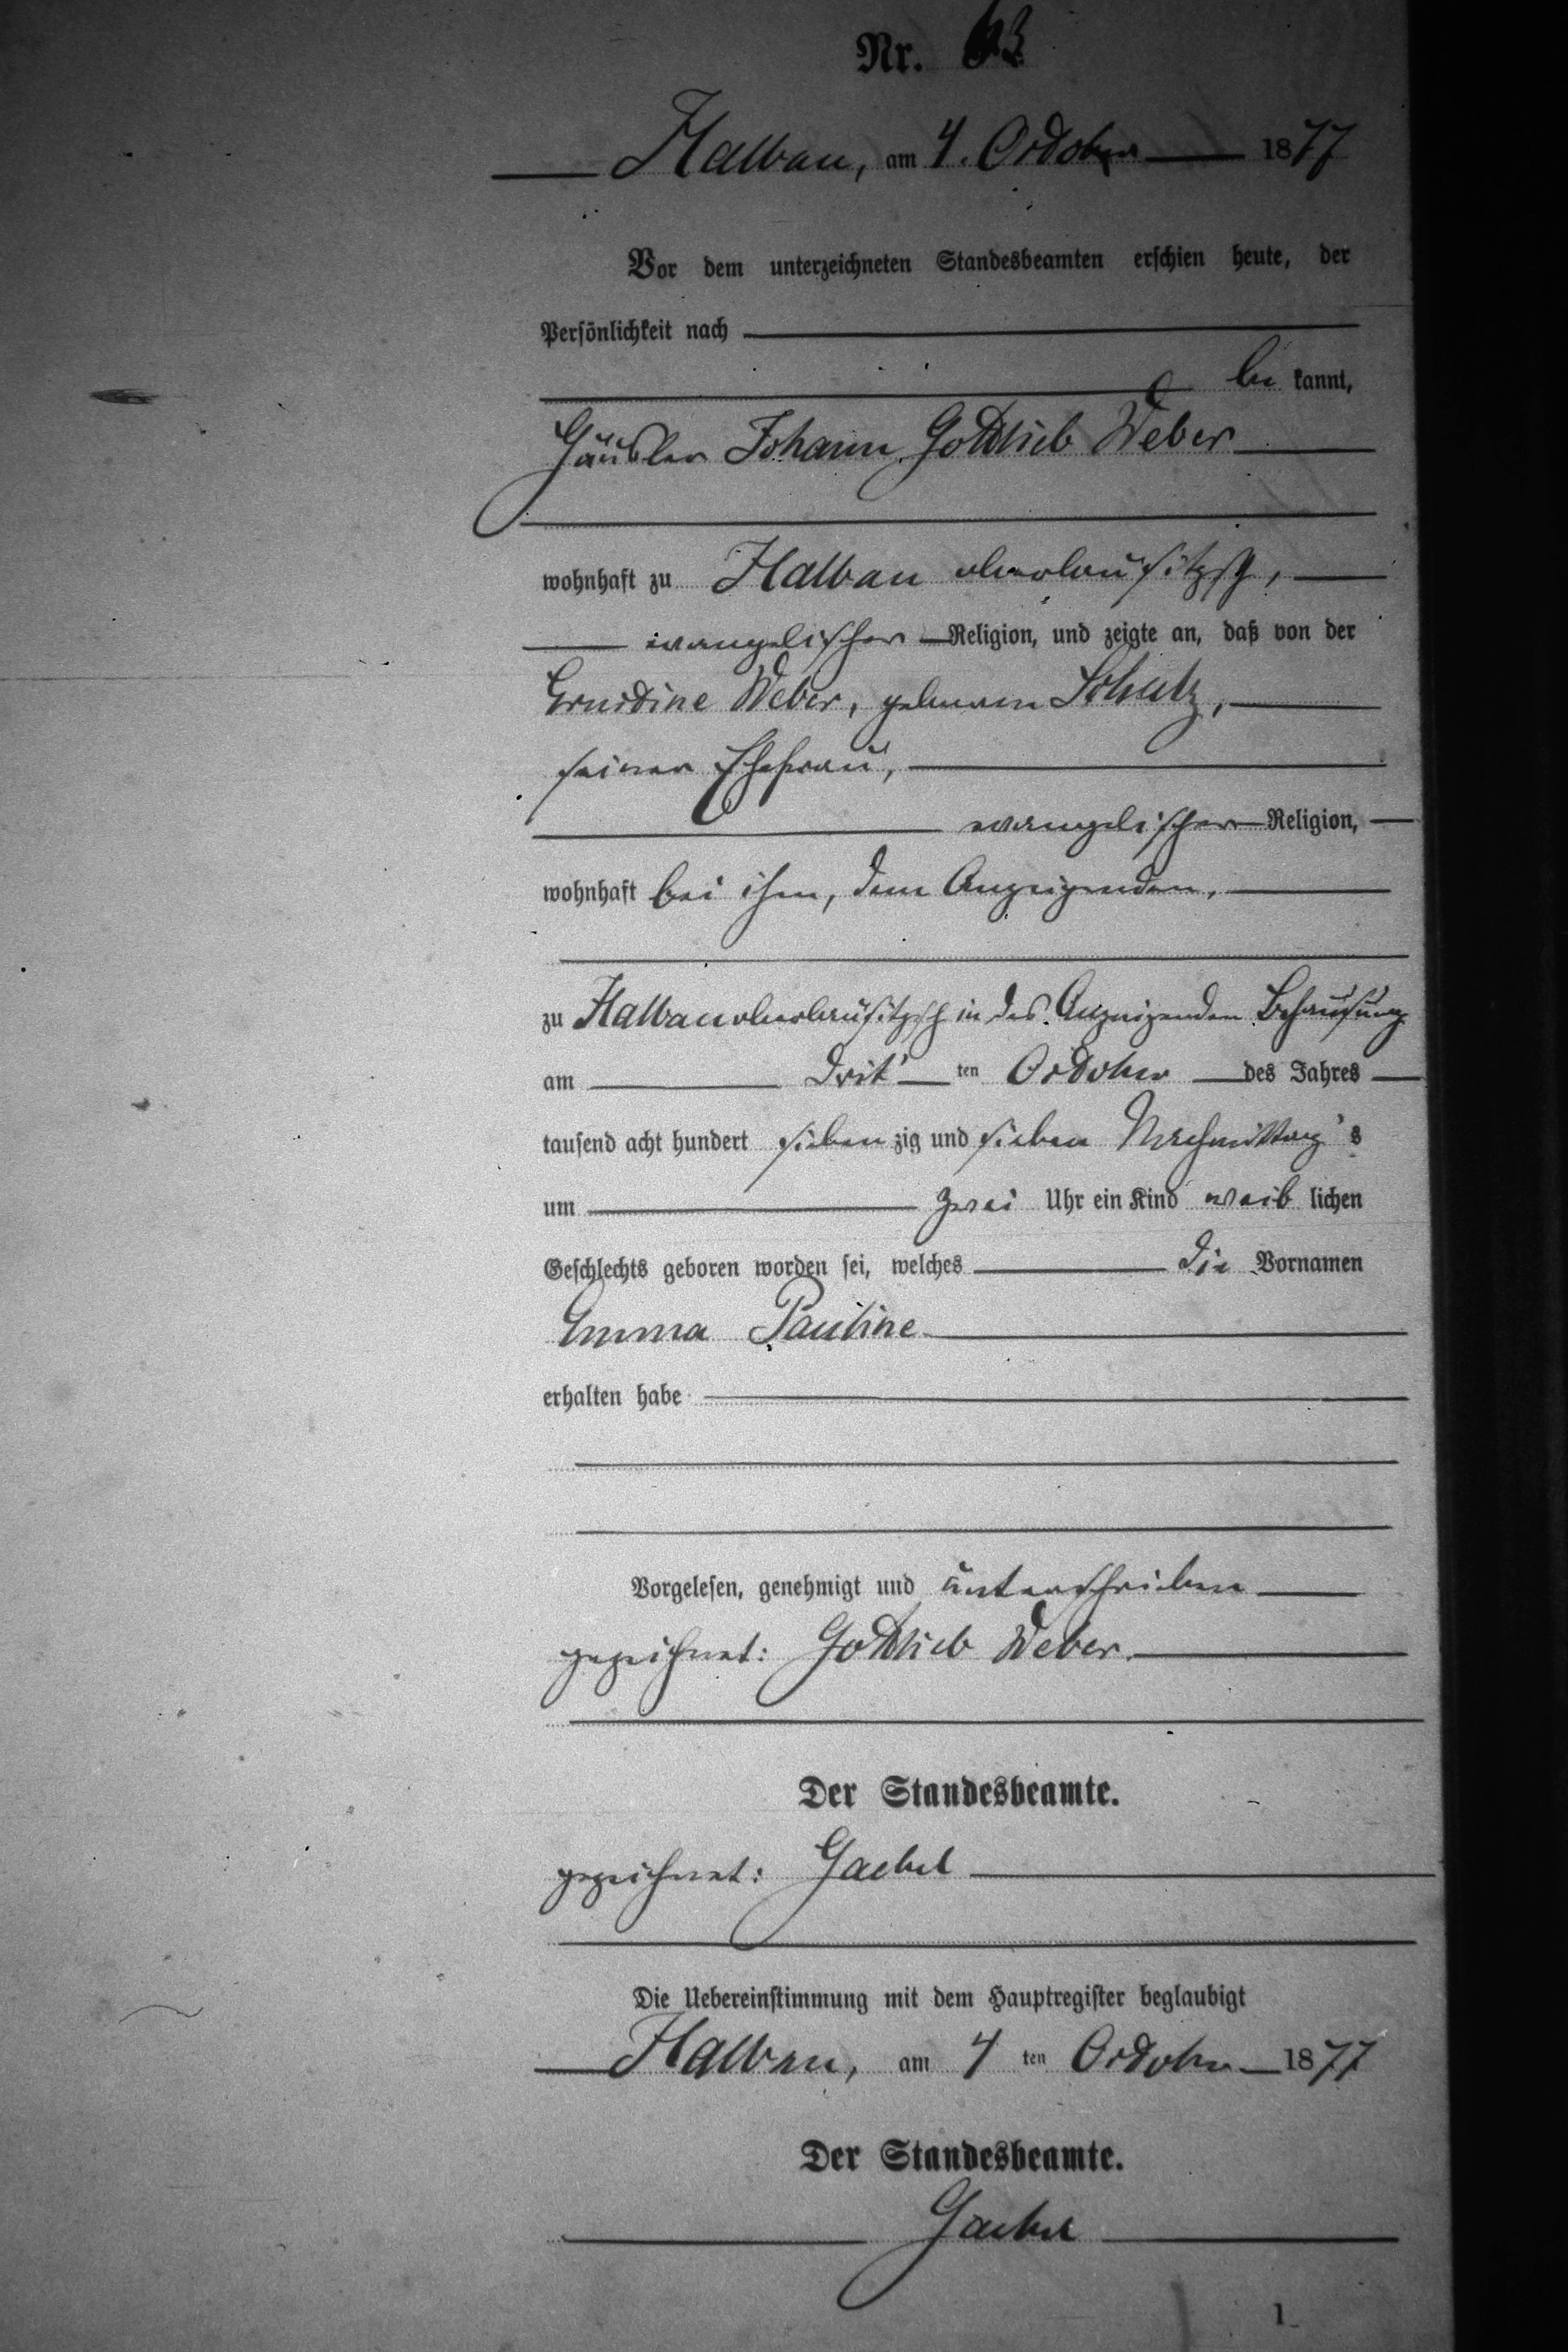 Nr. 63
Halbau, am 4. October 1877
Vor dem unterzeichneten Standesbeamten erschien heute, der
Persönlichkeit nach
be kannt,
Häusler Johann Gottlieb Weber
wohnhaft zu Halbau oberlausitzsch,
evangelischer Religion, und zeigte an, daß von der
Ernestine Weber, geborenen Schulz,
seiner Ehefrau,
evangelischer Religion,
wohnhaft bei ihm, dem Anzeigenden,
zu Halbau oberlausitzsch in des Anzeigenden Behausung
am drit ten October des Jahres
tausend acht hundert sieben zig und sieben Nachmittag s
um zwei Uhr ein Kind weib lichen
Geschlechts geboren worden sei, welches die Vornamen
Emma Pauline
erhalten habe
Vorgelesen, genehmigt und unterschrieben
gezeichnet: Gottlieb Weber.
Der Standesbeamte.
gezeichnet: Gaebel
Die Uebereinstimmung mit dem Hauptregister beglaubigt
Halbau, am 4 ten October 1877
Der Standesbeamte.
Gaebel
1